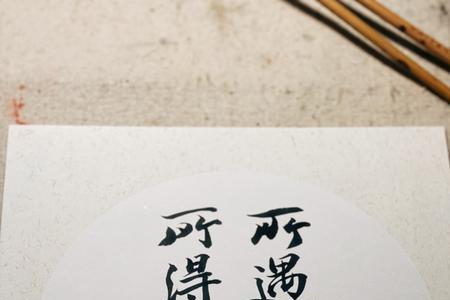 所遇
所得